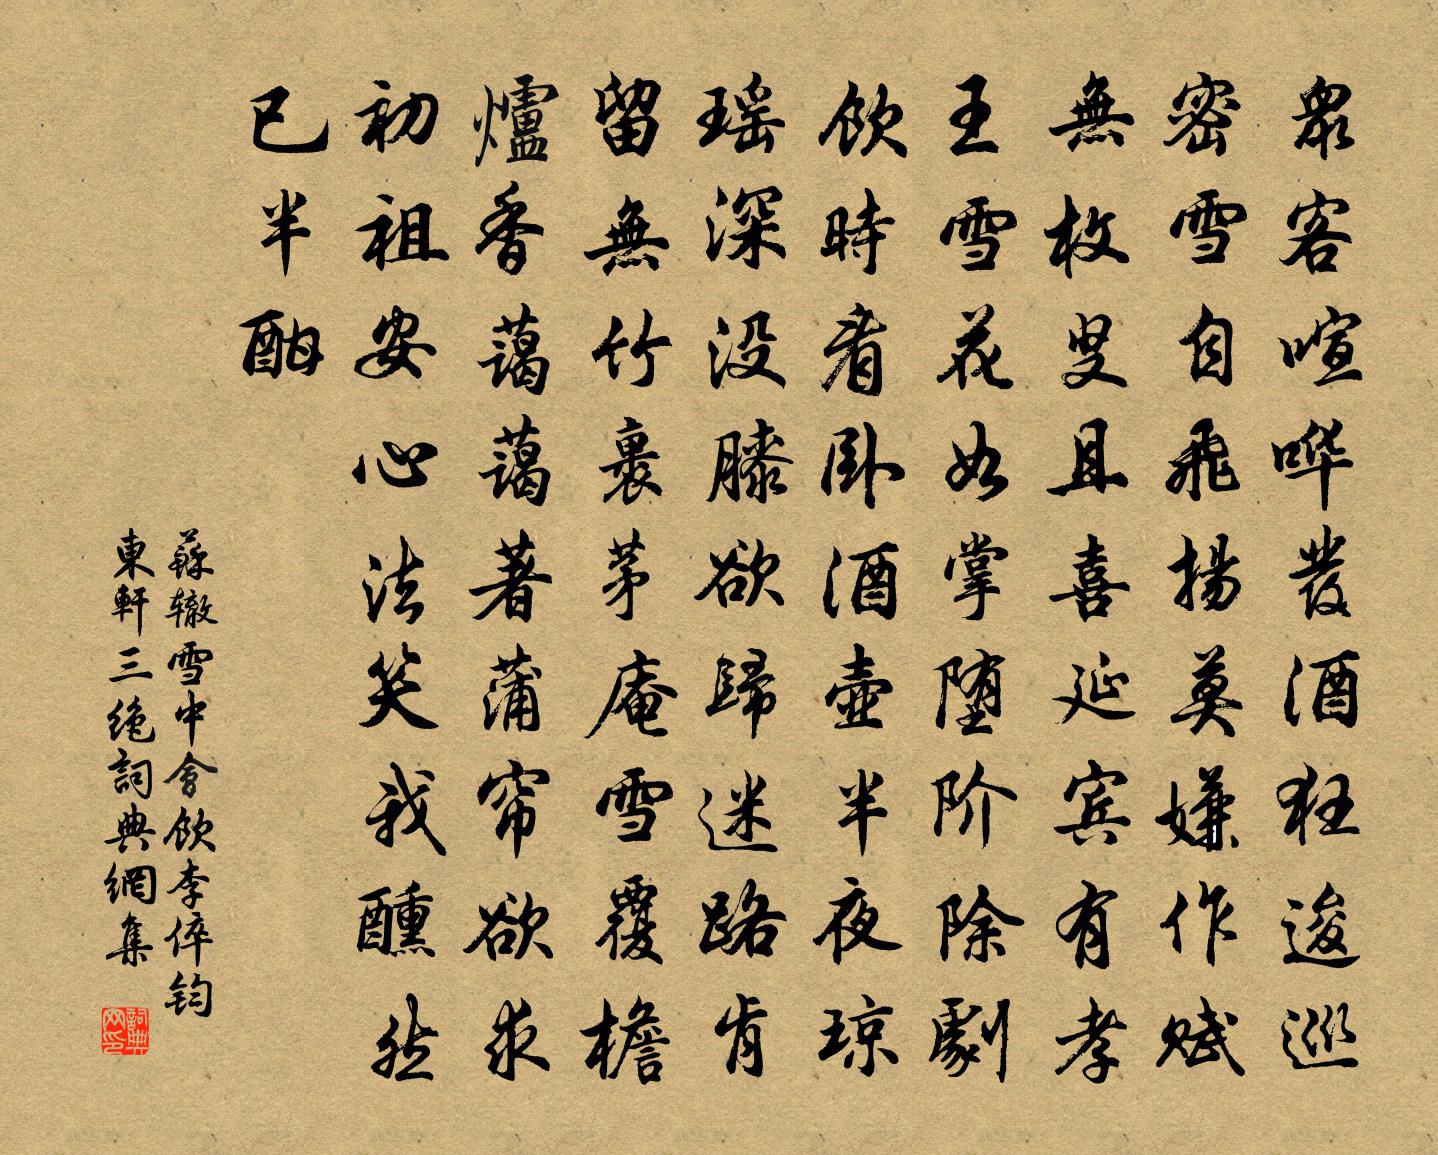 衆客喧哗發酒狂逡巡
密雪自飛揚莫嫌作賦
無枚叟且喜延宾有孝
王雪花如掌堕阶除劇
飲時看卧酒壷半夜琼
瑶深没膝欲歸迷路肯
留無竹裹茅庵雪覆檐
爐香藹藹著蒲帘欲求
初祖安心法笑我醺然
已半酣
蘇辙雪中會飲李倅钧
東軒三绝詞典網集
詞典网印